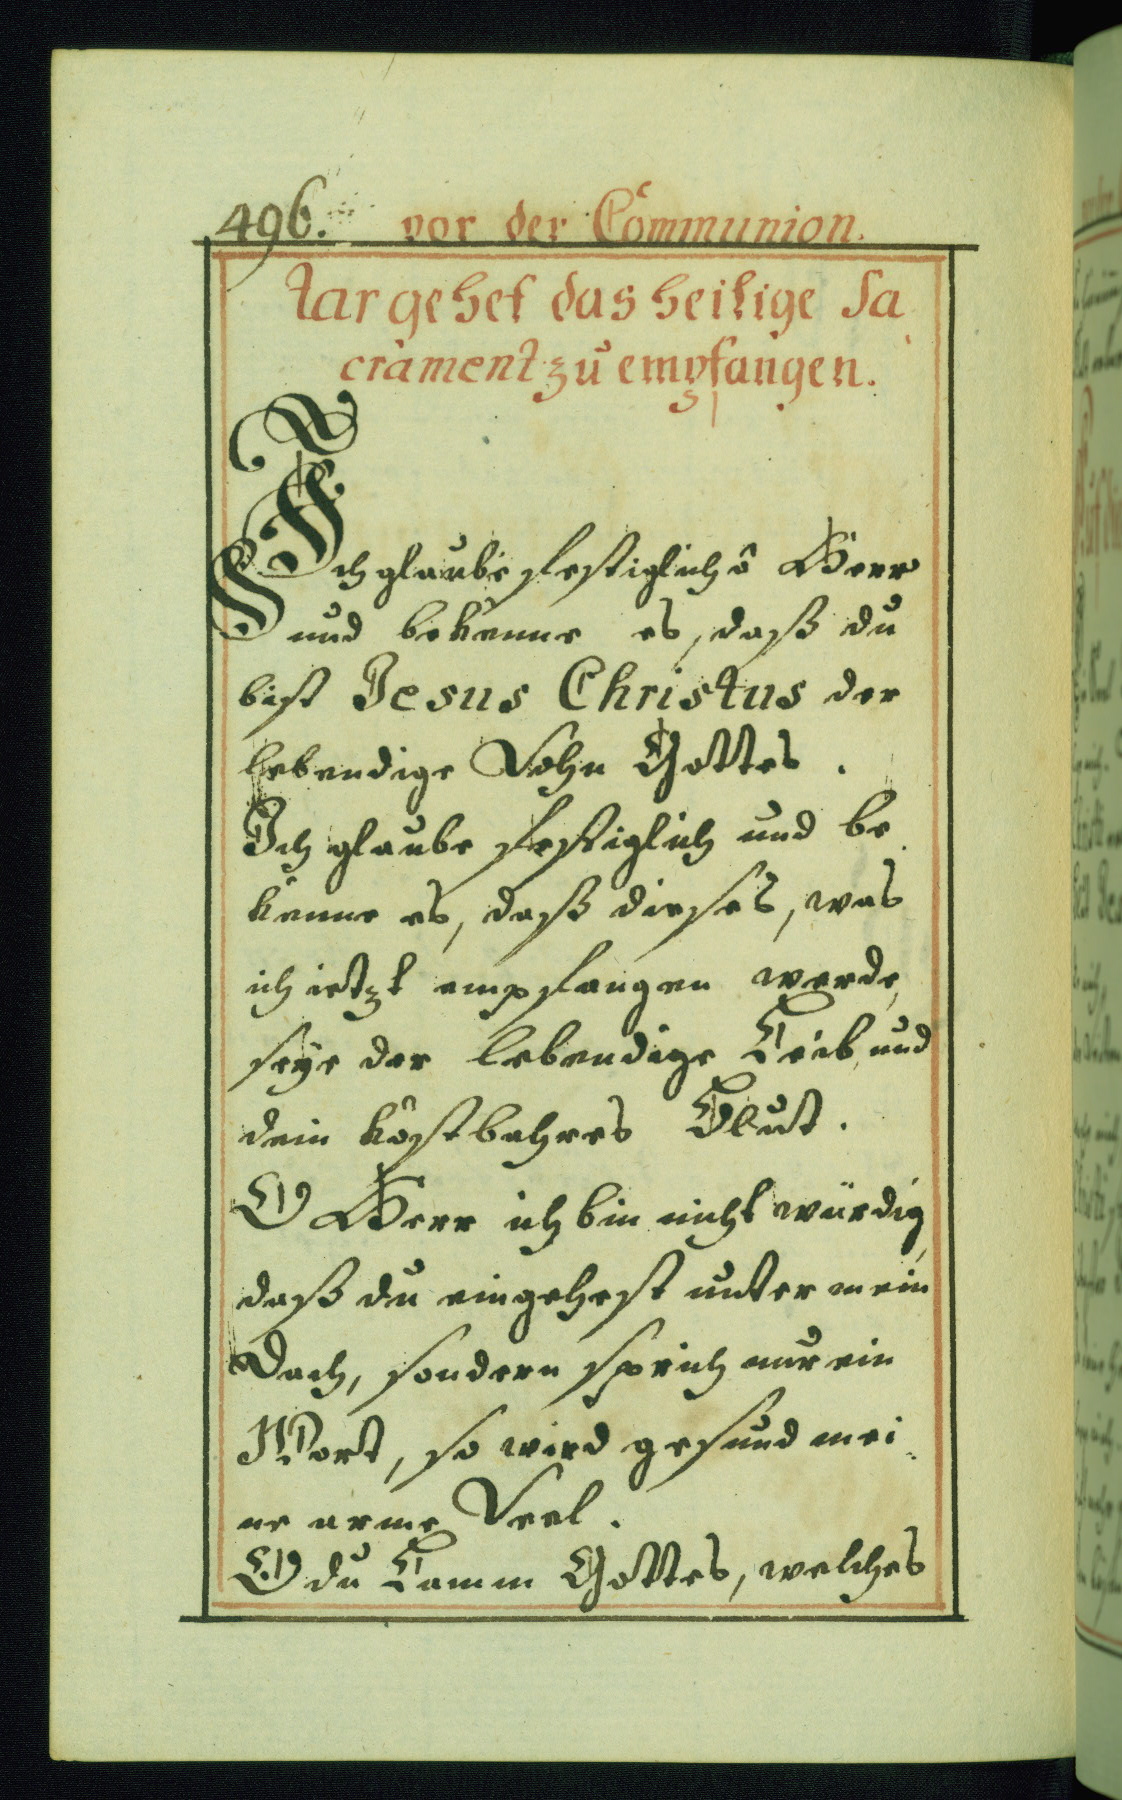 496. vor der Communion.
tar gehet das heilige Sa
crament zu empfangen.
Ich glaube festiglich ô Herr
und bekenne es, daß du
bist Jesus Christus der
lebendige Sohn Gottes.
Ich glaube festiglich und be
kenne es, daß dieses, was
ich ietzt empfangen werde,
seye der lebendige Leib, und
dein kostbahres Blut.
O Herr ich bin nicht würdig,
daß du eingehest unter mein
Dach, sondern sprich nur ein
Wort, so wird gesund mei
ne arme Seel.
O du Lamm Gottes, welches